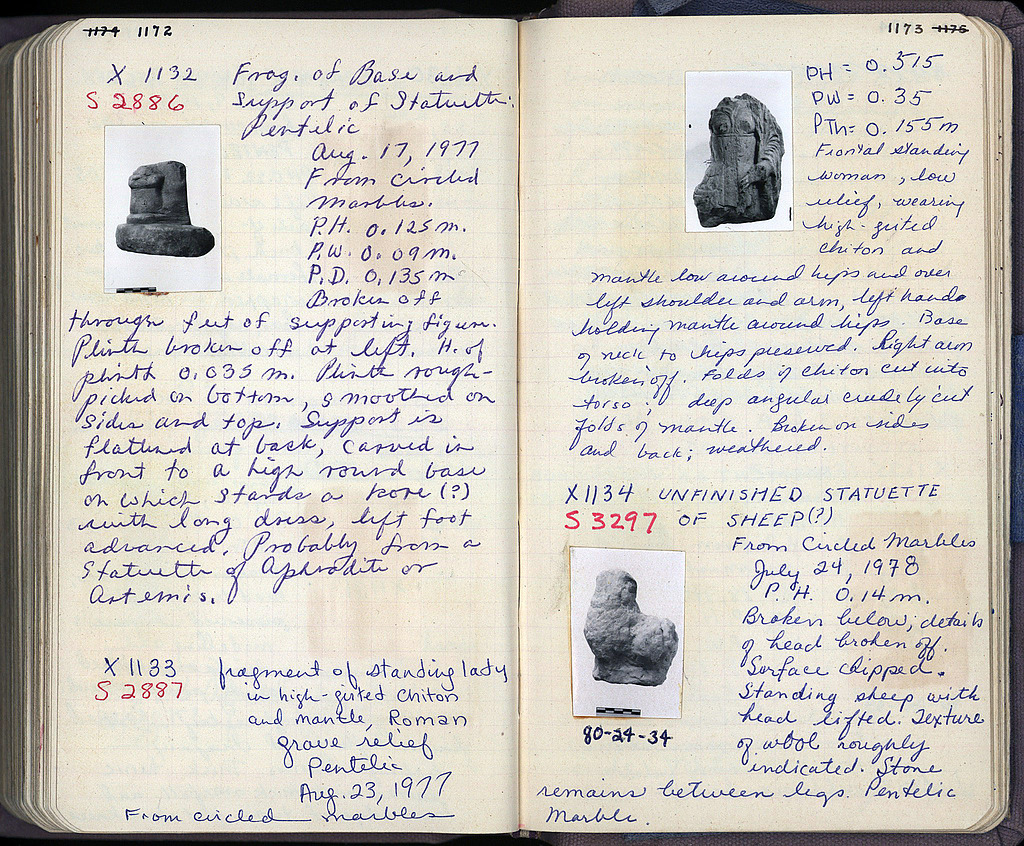 1174 1172
X 1132 Frag. of Base and
S 2886 Support of Statuette.
Pentelic
Aug. 17, 1977
From circled
Marbles.
P.H. 0.125 m.
P.W. 0.09 m.
P.D. 0.135 m
Broken off
through feet of supporting figure.
Plinth broken off at left. H. of
plinth 0.035 m. Plinth rough-
picked on bottom, smoothed on
sides and top. Support is
flattened at back, carved in
front to a high round base
on which stands a kore (?)
with long dress, left foot
advanced. Probably from a
Statuette of Aphrodite or
Artemis.
X 1133 fragment of standing lady
S 2887 in high-girted chiton
and mantle, Roman
grave relief
Pentelic
Aug. 23, 1977
From circled marbles
1173 1175
PH = 0.515
PW = 0.35
PTh = 0.155 m
Frontal standing
woman, low
relief, wearing
high-girted
chiton and
mantle low around hips and over
left shoulder and arm, left hand
holding mantle around hips. Base
of neck to hips preserved. Right arm
broken off. Folds of chiton cut into
torso; deep angular crudely cut
folds of mantle. Broken on sides
and back; weathered.
X 1134 UNFINISHED STATUETTE
S 3297 OF SHEEP (?)
From Circled Marbles
July 24, 1978
P. H. 0.14 m.
Broken below; details
of head broken off.
Surface chipped.
Standing sheep with
head lifted. Texture
of wool roughly
indicated. Stone
remains between legs. Pentelic
Marble.
80-24-34